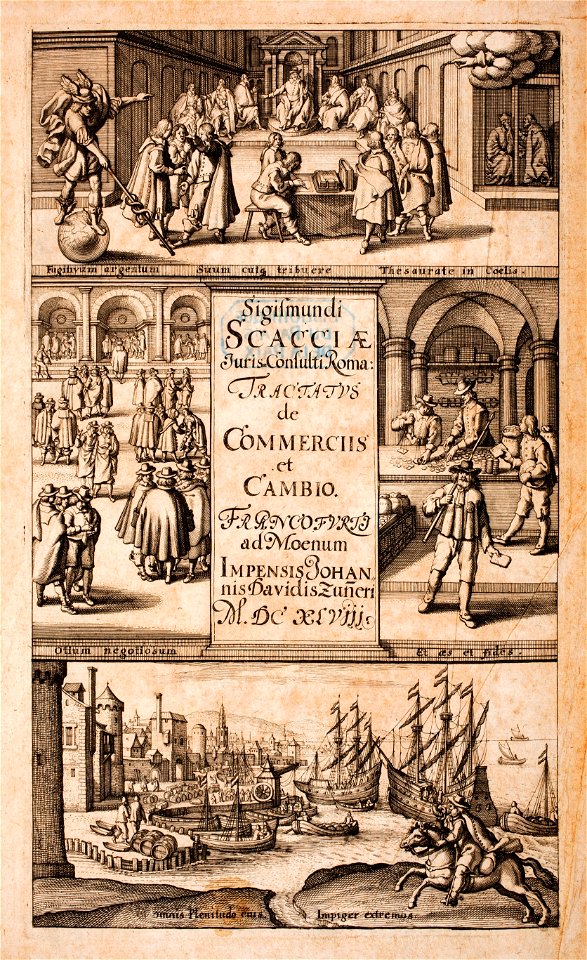 Fugitivum argentum
Suum cuiq tribuere
Thesaurate in Coelis.
Sigismundi
SCACCIÆ
Juris Consulti Roma:
TRACTATVS
de
COMMERCIIS
et
CAMBIO.
FRANCOFVRTI
ad Moenum
IMPENSIS JOHAN
nis Davidis Zuneri
M. DC XLVIII.
Otium negotiosum
Et æs et fides.
omnis Plenitudo eius.
Impiger extremos